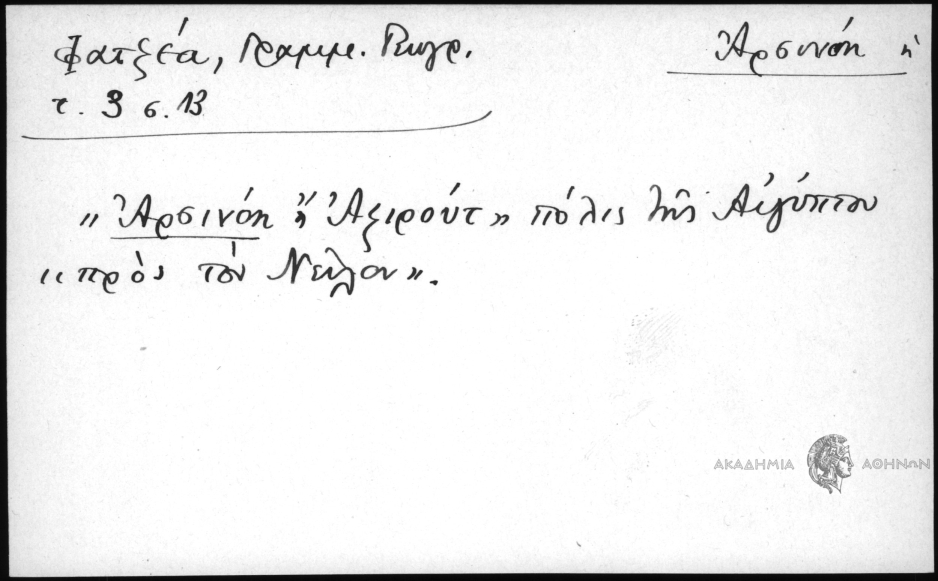 Φατζέα, Γραμμ. Γεωγρ.
Ἀρσινόη ἡ
τ. 3 σ. 13
"Ἀρσινόη ἢ Ἀξιρούτ" πόλις τῆς Αἰγύπτου
"πρὸς τὸν Νεῖλον".
ΑΚΑΔΗΜΙΑ ΑΘΗΝΩΝ